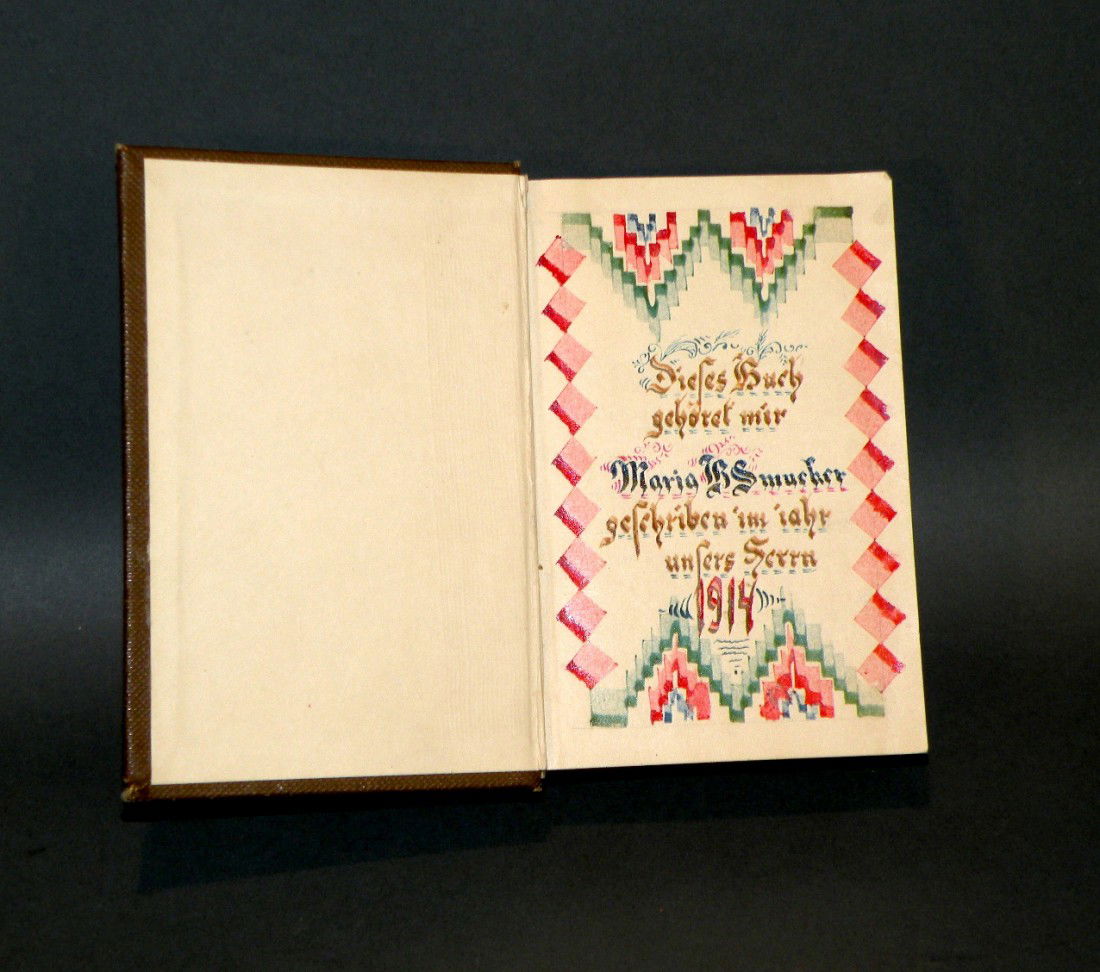 Dieses Buch
gehöret mir
Maria H Smucker
geschriben im iahr
unsers Herrn
1914